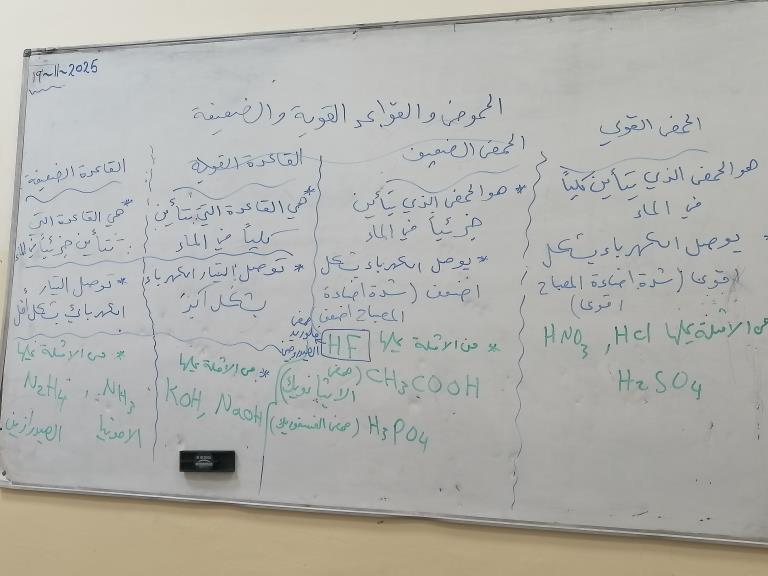 19-11-2025
الحموض والقواعد القوية والضعيفة
الحمض القوي
هو الحمض الذي يتأين كلياً
في الماء
* يوصل الكهرباء بشكل
اقوى (شدة اضاءة المصباح
اقوى)
من الامثلة عليها HNO3 , HCl
H2SO4
الحمض الضعيف
* هو الحمض الذي يتأين
جزئياً في الماء
* يوصل الكهرباء بشكل
اضعف (شدة اضاءة
المصباح اضعف
* من الامثلة عليها HF حمض فلوريد الهيدروجين
CH3COOH (حمض الايثانويك)
H3PO4 (حمض الفسفوريك)
القاعدة القوية
* هي القاعدة التي تتأين
كلياً في الماء
* توصل التيار الكهرباء
بشكل أكبر
* من الامثلة عليها
KOH, NaOH
القاعدة الضعيفة
* هي القاعدة التي
تتأين جزئياً في الماء
* توصل التيار
الكهربائي بشكل أقل
* من الامثلة عليها
N2H4 , NH3
الامونيا الهيدرازين